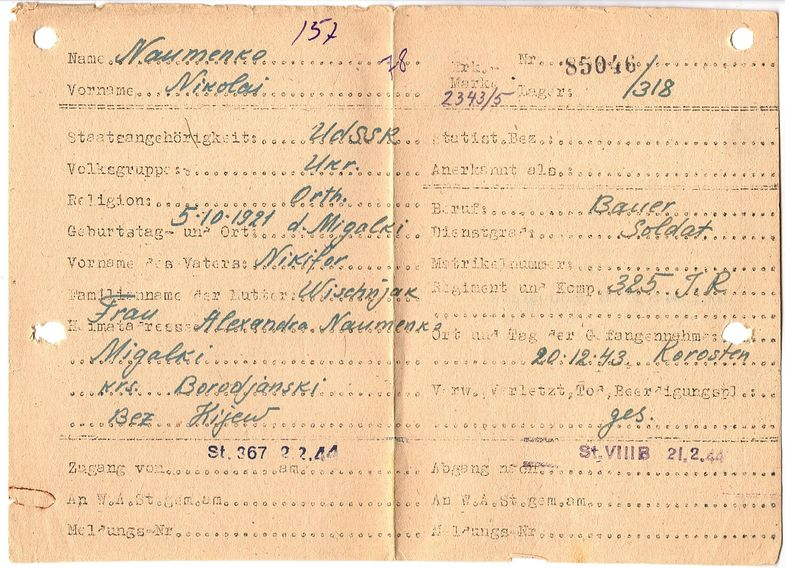 157
78
Name Naumenko
Vorname Nikolai
Staatsangehörigkeit: UdSSR
Volksgruppe: Ukr.
Religion: Orth.
5.10.1921 d. Migalki
Geburtstag- und Ort:
Vorname des Vaters: Nikifor
Familienname der Mutter: Wischnjak
Frau
Heimatadresse: Alexandra Naumenko
Migalki
krs. Borodjanski
Bez Kijew
St. 367 2.2.44
Zugang von am
An W.A.St.gem.am
Meldungs-Nr
Erk.-Marke Nr. 85046/
2343/5 Lager: /318
Statist.Bez.:
Anerkannt als:
Beruf: Bauer
Dienstgrad: Soldat
Matrikelnummer:
Regiment und Komp. 325 J.R.
Ort und Tag der Gefangennahme:
20.12.43 Korosten
Verw.Verletzt,Tod,Beerdigungspl:
ges.
St. VIII B 21.2.44
Abgang nach:
An W.A.St.gem.am
Meldungs-Nr